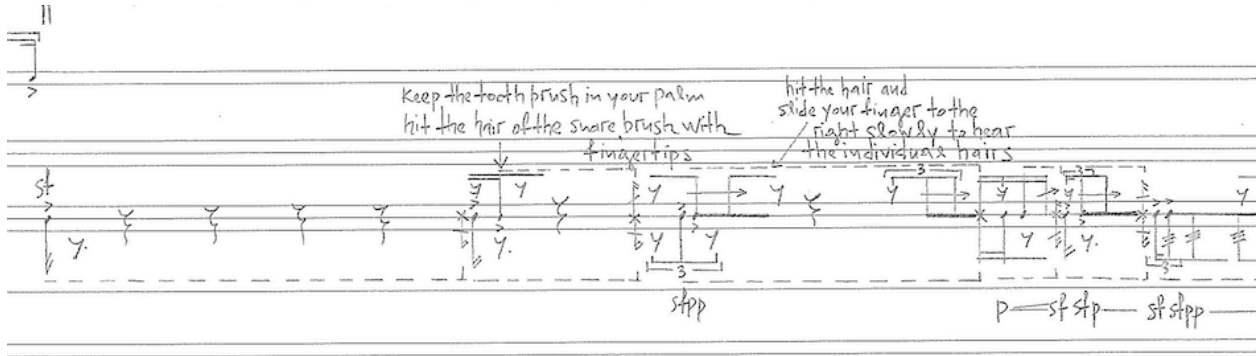 11
keep the tooth brush in your palm
hit the hair of the snare brush with
fingertips
hit the hair and
slide your finger to the
right slowly to hear
the individual hairs
sf
3
3
3
3
sfpp
p sf sfp sf sfpp